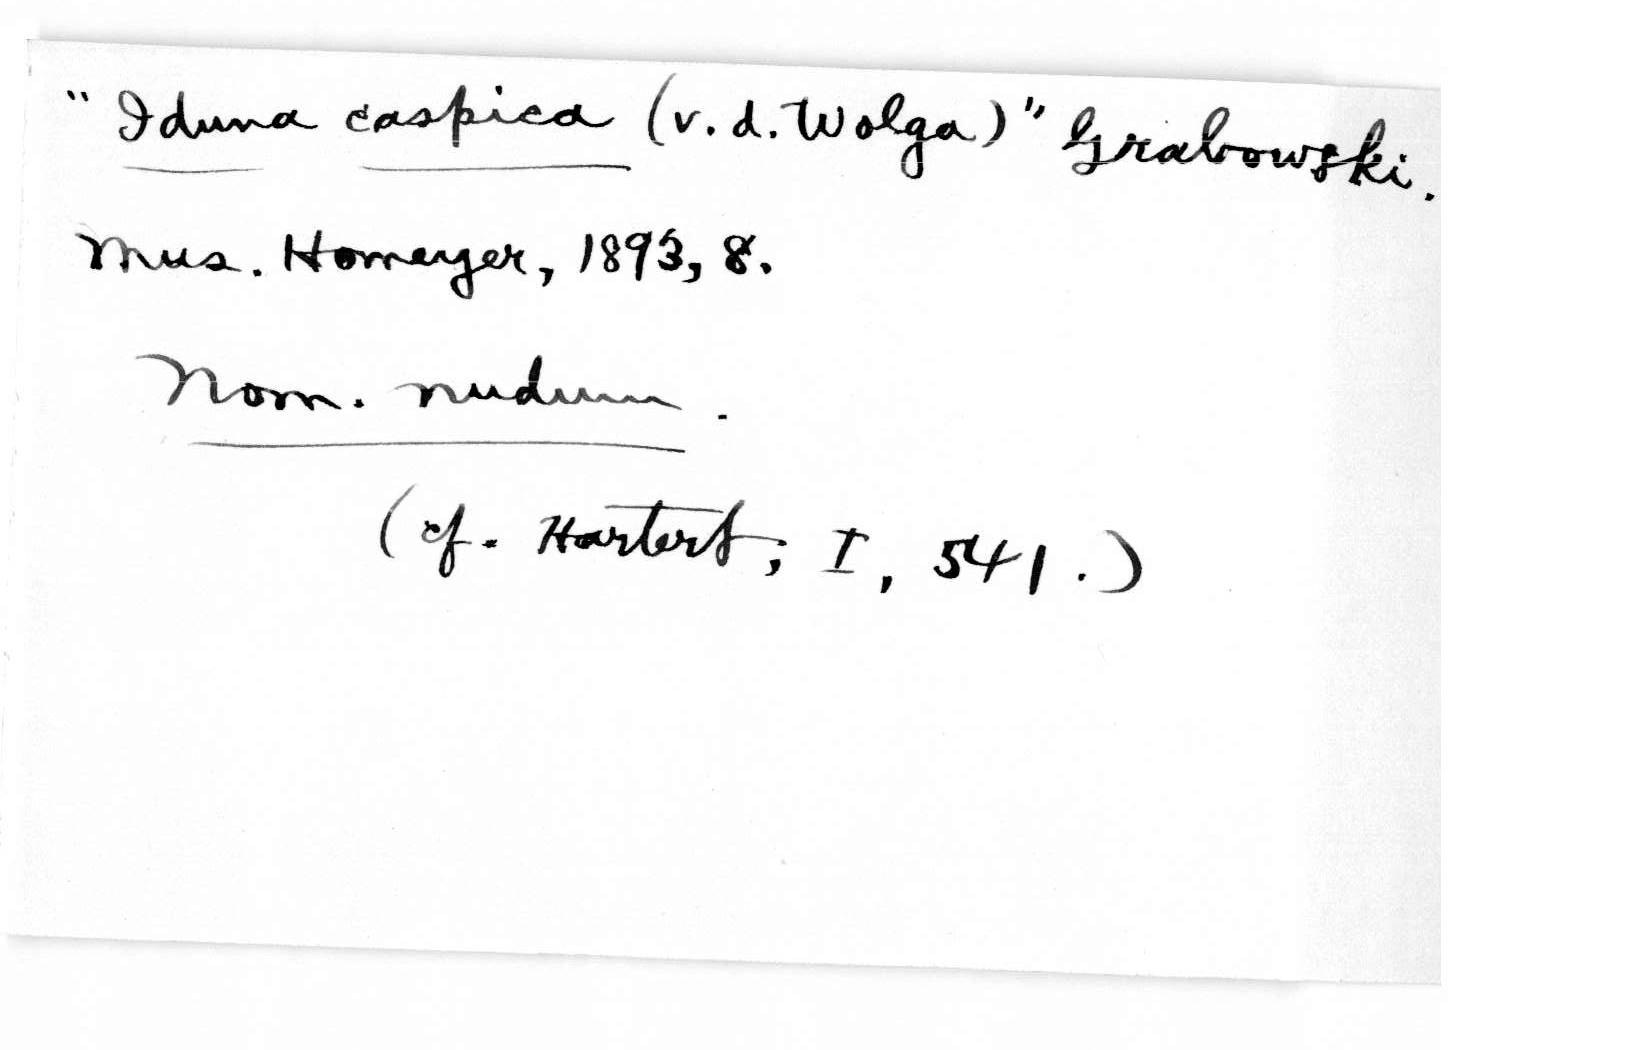 "Iduna caspica (v. d. Wolga)" Grabowski.
Mus. Homeyer, 1893, 8.
Nom. nudum.
(cf. Hartert, I, 541.)